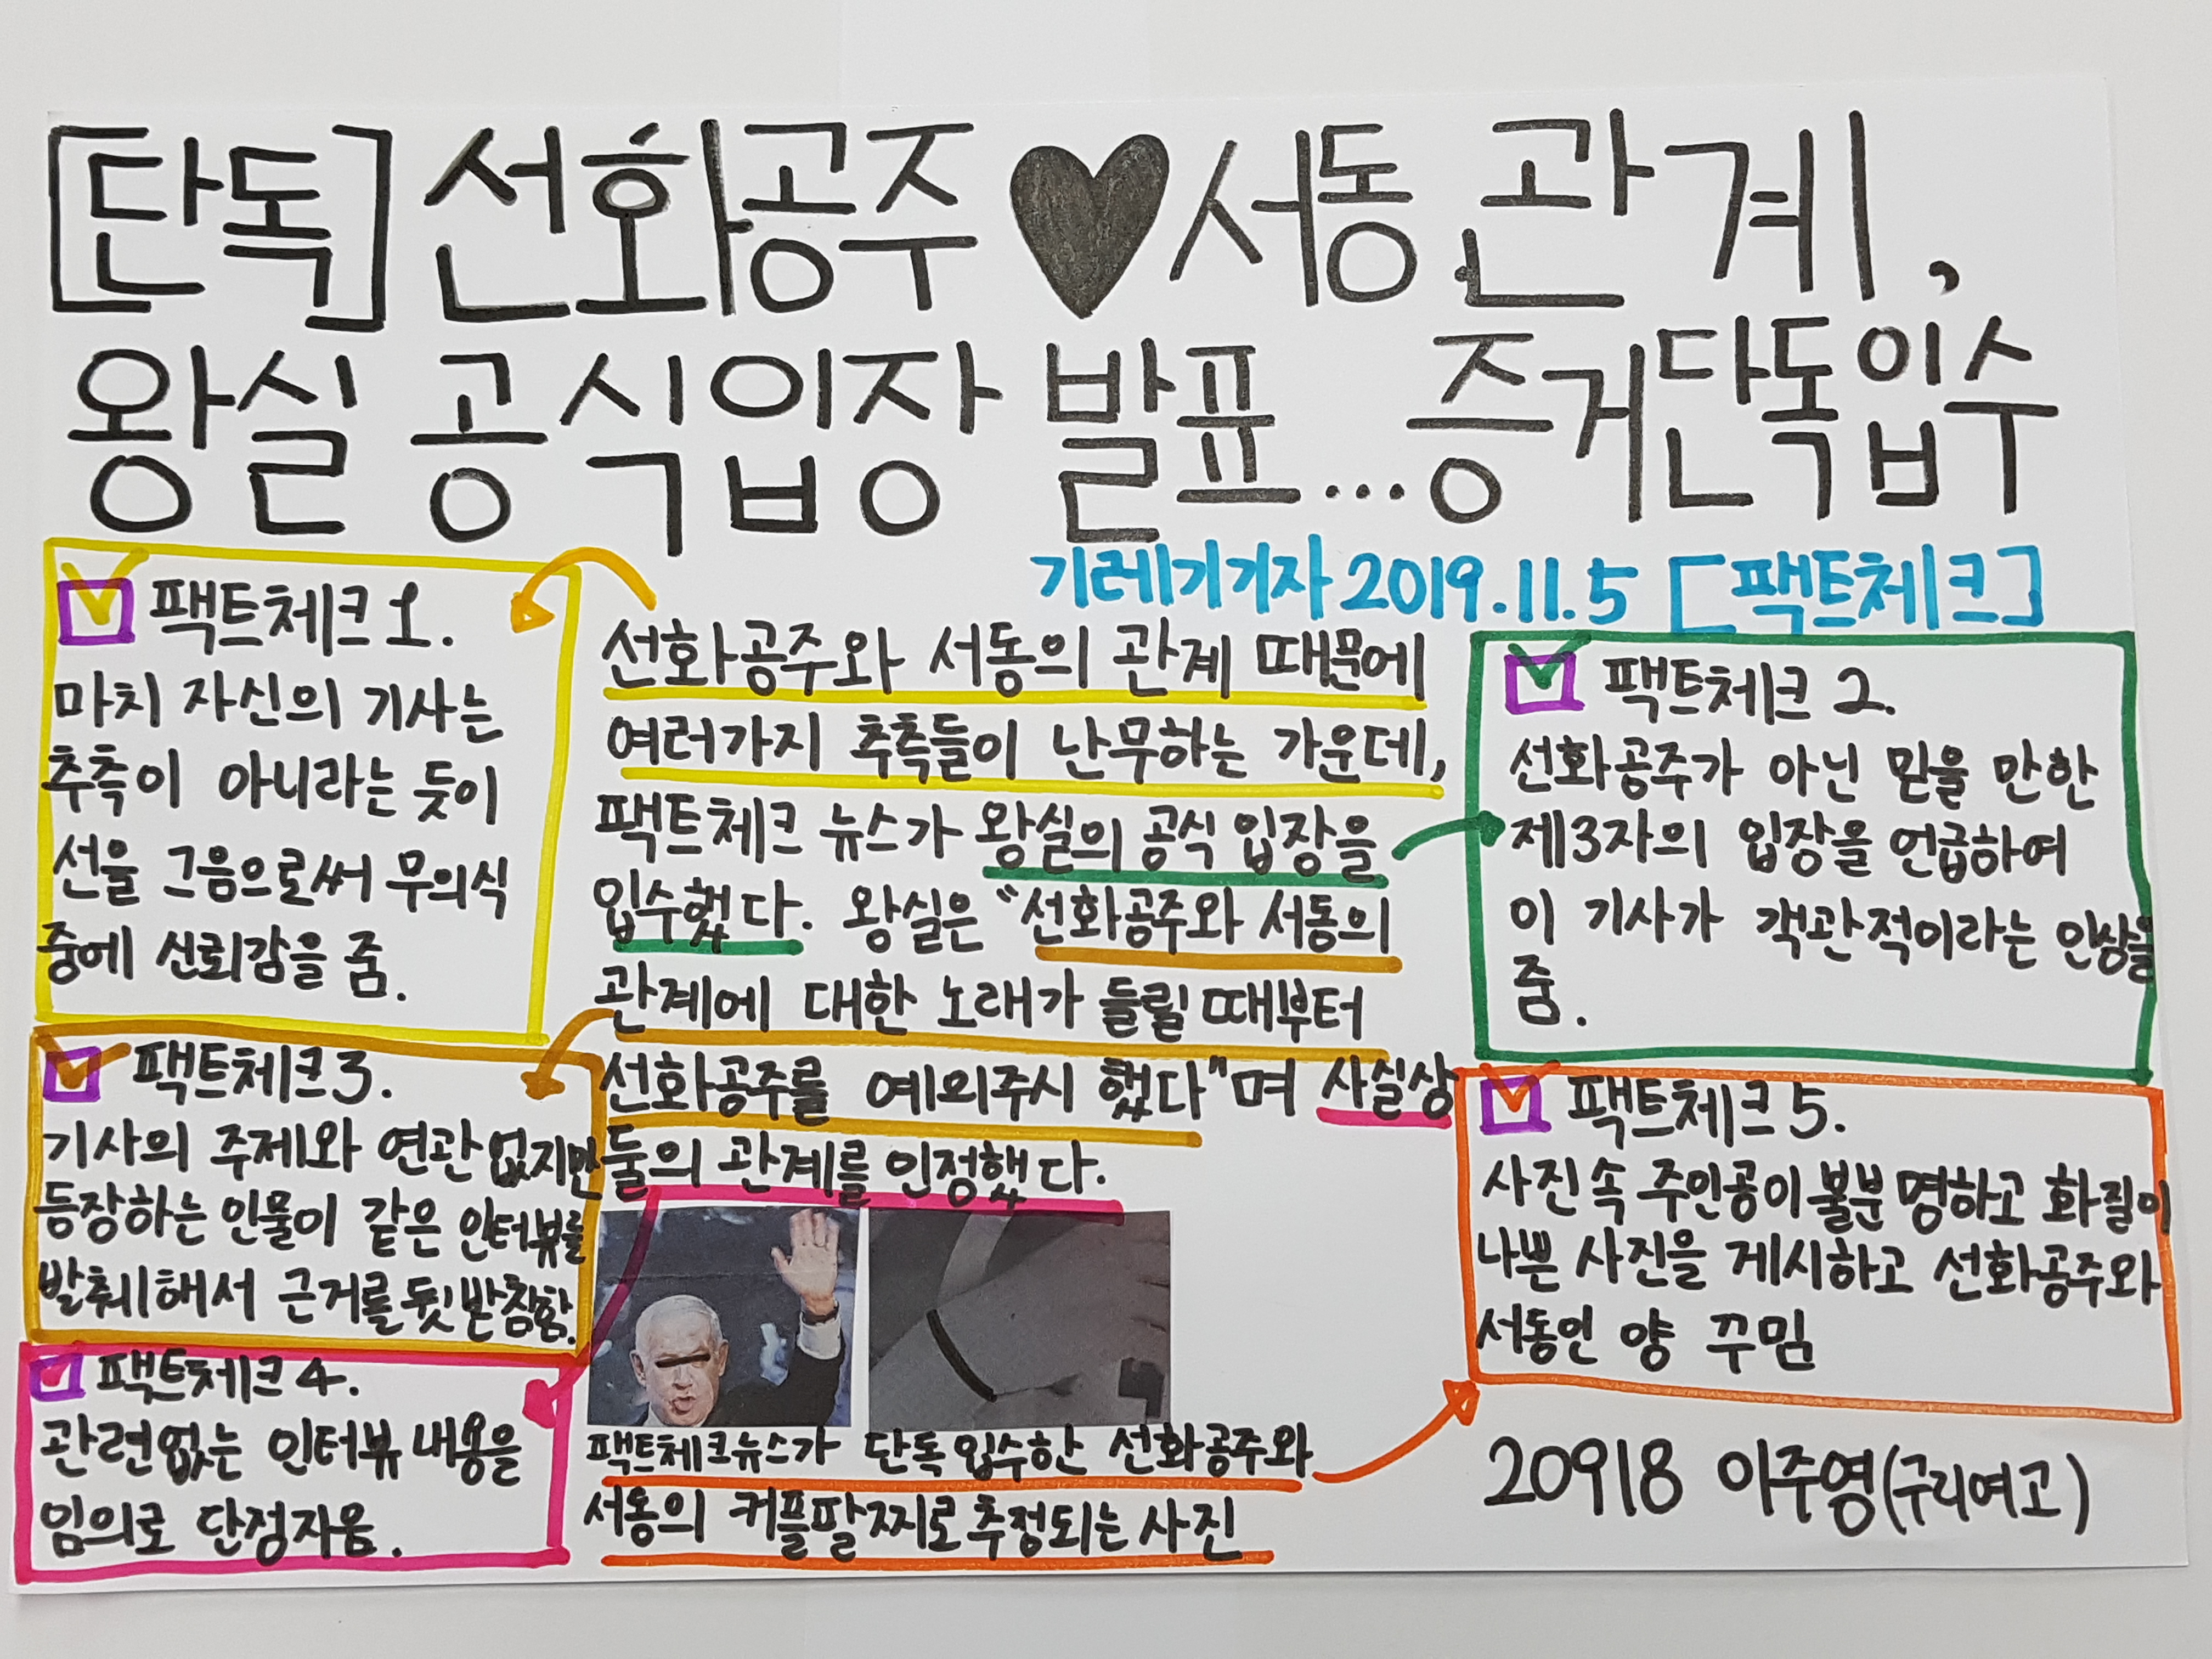 [단독] 선화공주♥서동 관계,
왕실 공식입장 발표...증거단독입수
기레기기자 2019.11.5 [팩트체크]
팩트체크 1.
마치 자신의 기사는
추측이 아니라는 듯이
선을 그음으로써 무의식
중에 신뢰감을 줌.
선화공주와 서동의 관계 때문에
여러가지 추측들이 난무하는 가운데,
팩트체크 뉴스가 왕실의 공식 입장을
입수했다. 왕실은 "선화공주와 서동의
관계에 대한 노래가 들릴 때부터
선화공주를 예의주시 했다"며 사실상
둘의 관계를 인정했다.
팩트체크 2.
선화공주가 아닌 믿을 만한
제3자의 입장을 언급하여
이 기사가 객관적이라는 인상을
줌.
팩트체크 3.
기사의 주제와 연관없지만
등장하는 인물이 같은 인터뷰를
발췌해서 근거를 뒷받침함.
팩트체크 4.
관련없는 인터뷰 내용을
임의로 단정지음.
팩트체크뉴스가 단독입수한 선화공주와
서동의 커플팔찌로 추정되는 사진
팩트체크 5.
사진속 주인공이 불분명하고 화질이
나쁜 사진을 게시하고 선화공주와
서동인 양 꾸밈
20918 이주영(구리여고)